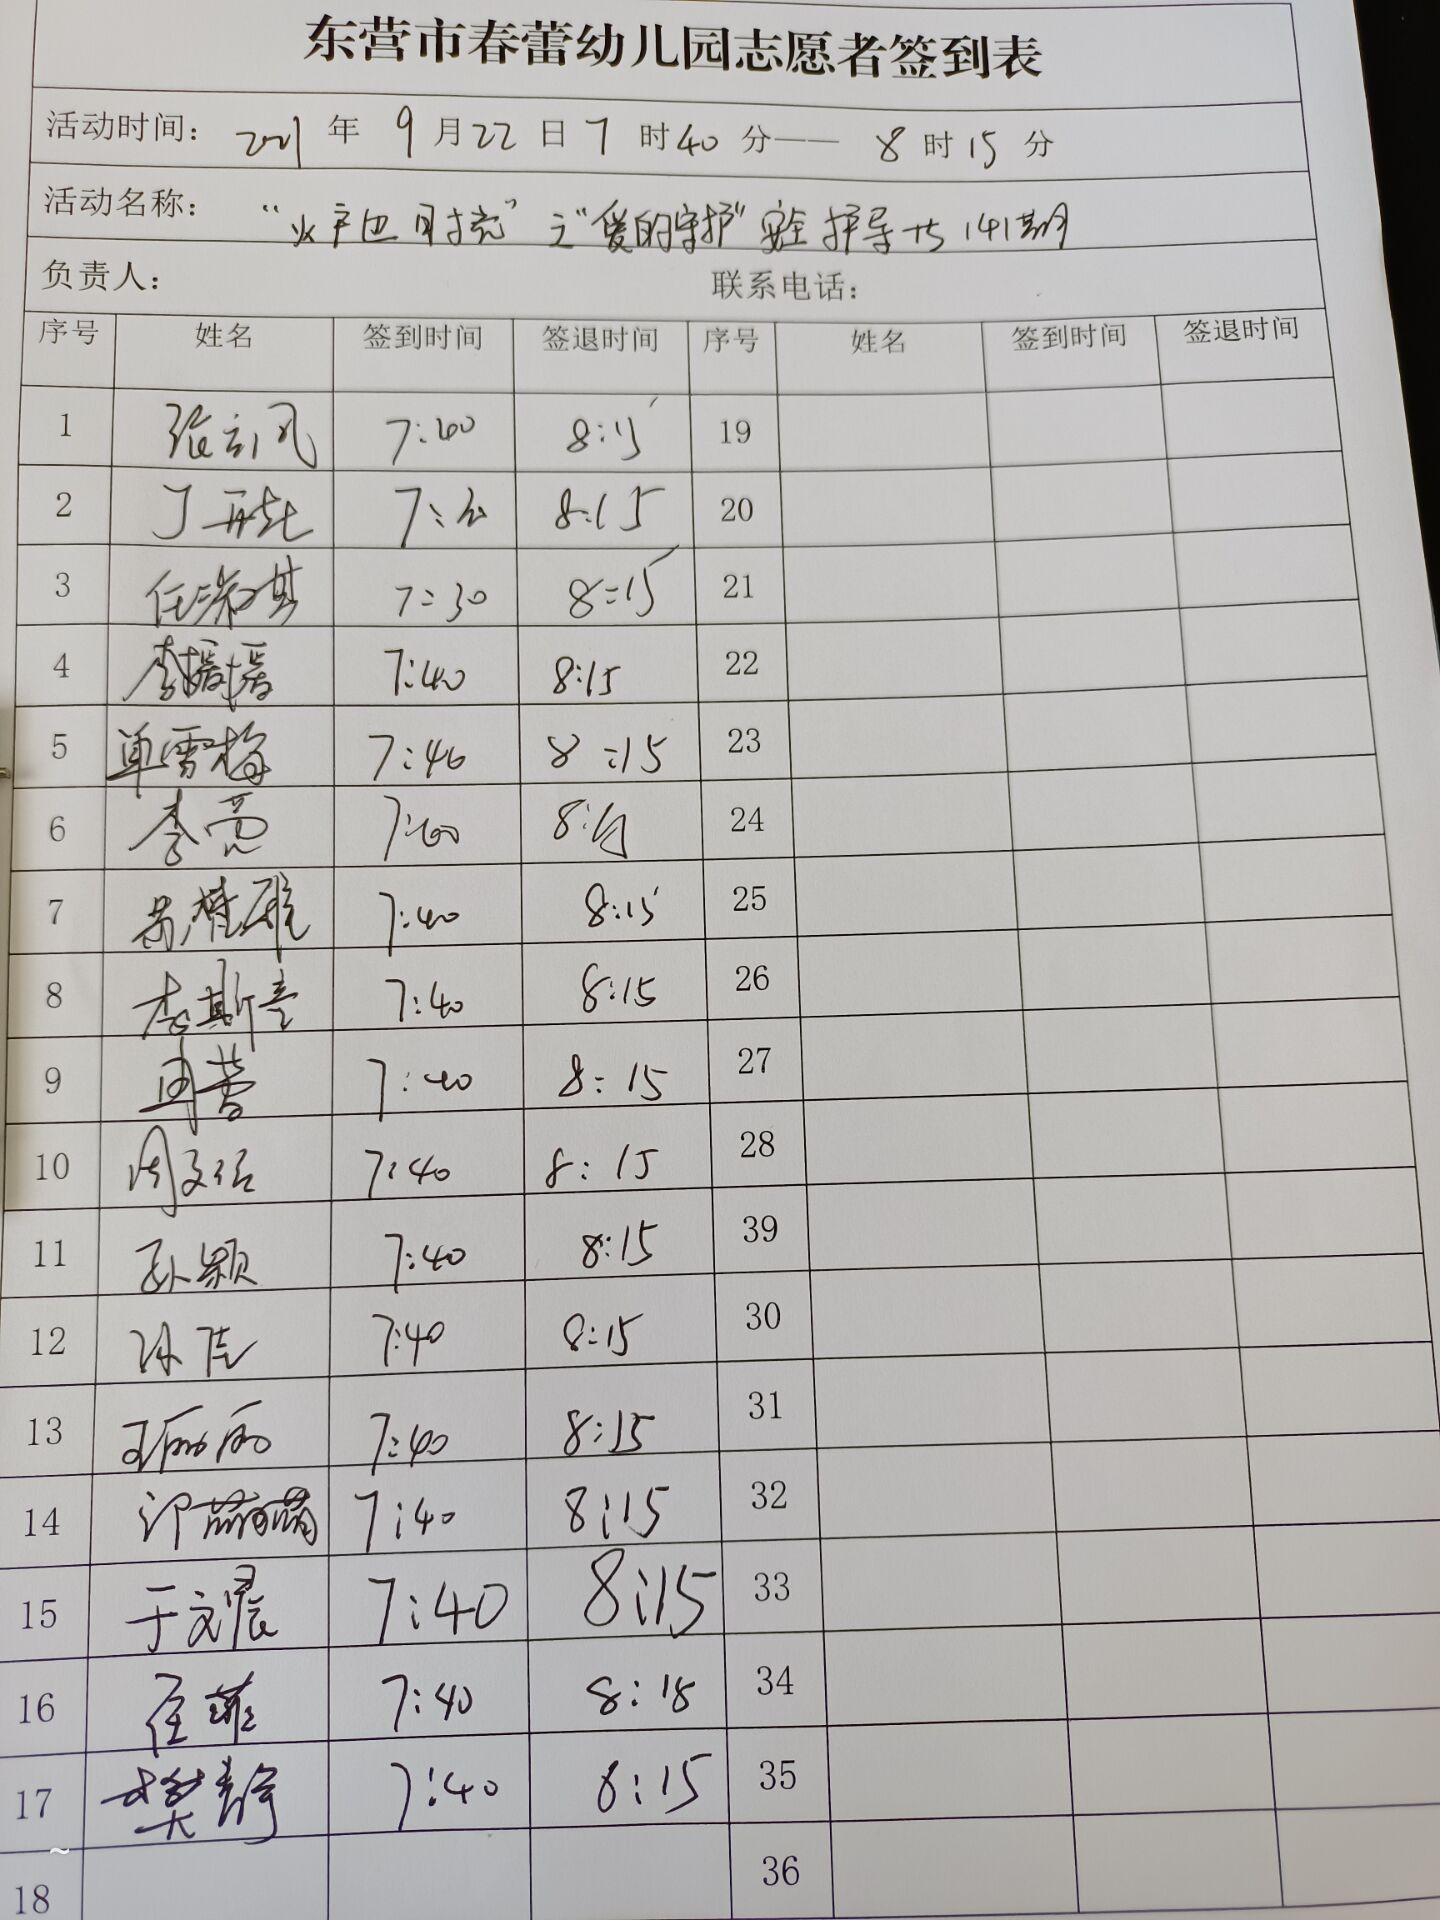 东营市春蕾幼儿园志愿者签到表
活动时间: 2021年9月22日7时40分——8时15分
活动名称: 之"爱的守护"安全护导 141期
负责人: 联系电话:
序号 姓名 签到时间 签退时间 序号 姓名 签到时间 签退时间
1 7:40 8:15 19
2 丁 8:15 20
3 任淑其 7:30 8:15 21
4 李媛媛 7:40 8:15 22
5 单雪梅 7:40 8:15 23
6 李亮 8: 24
7 7:40 8:15 25
8 李斯 7:40 8:15 26
9 7:40 8:15 27
10 周文 7:40 8:15 28
11 孙颖 7:40 8:15 39
12 7:40 8:15 30
13 王丽丽 7:40 8:15 31
14 7:40 8:15 32
15 于文宸 7:40 8:15 33
16 任菲 7:40 8:18 34
17 樊静 7:40 8:15 35
18 36